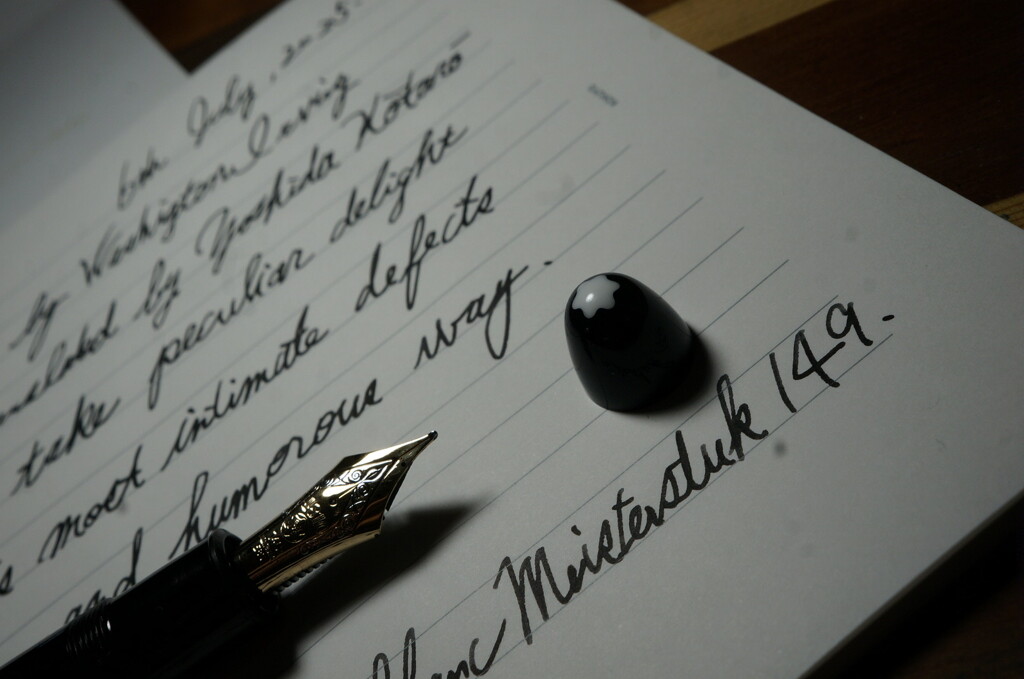 6th July, 2025.
by Washigton Irvig
by Yoshida Kōtarō
take peculiar delight
most intimate defects
and humorous way.
Meisterstuk 149.